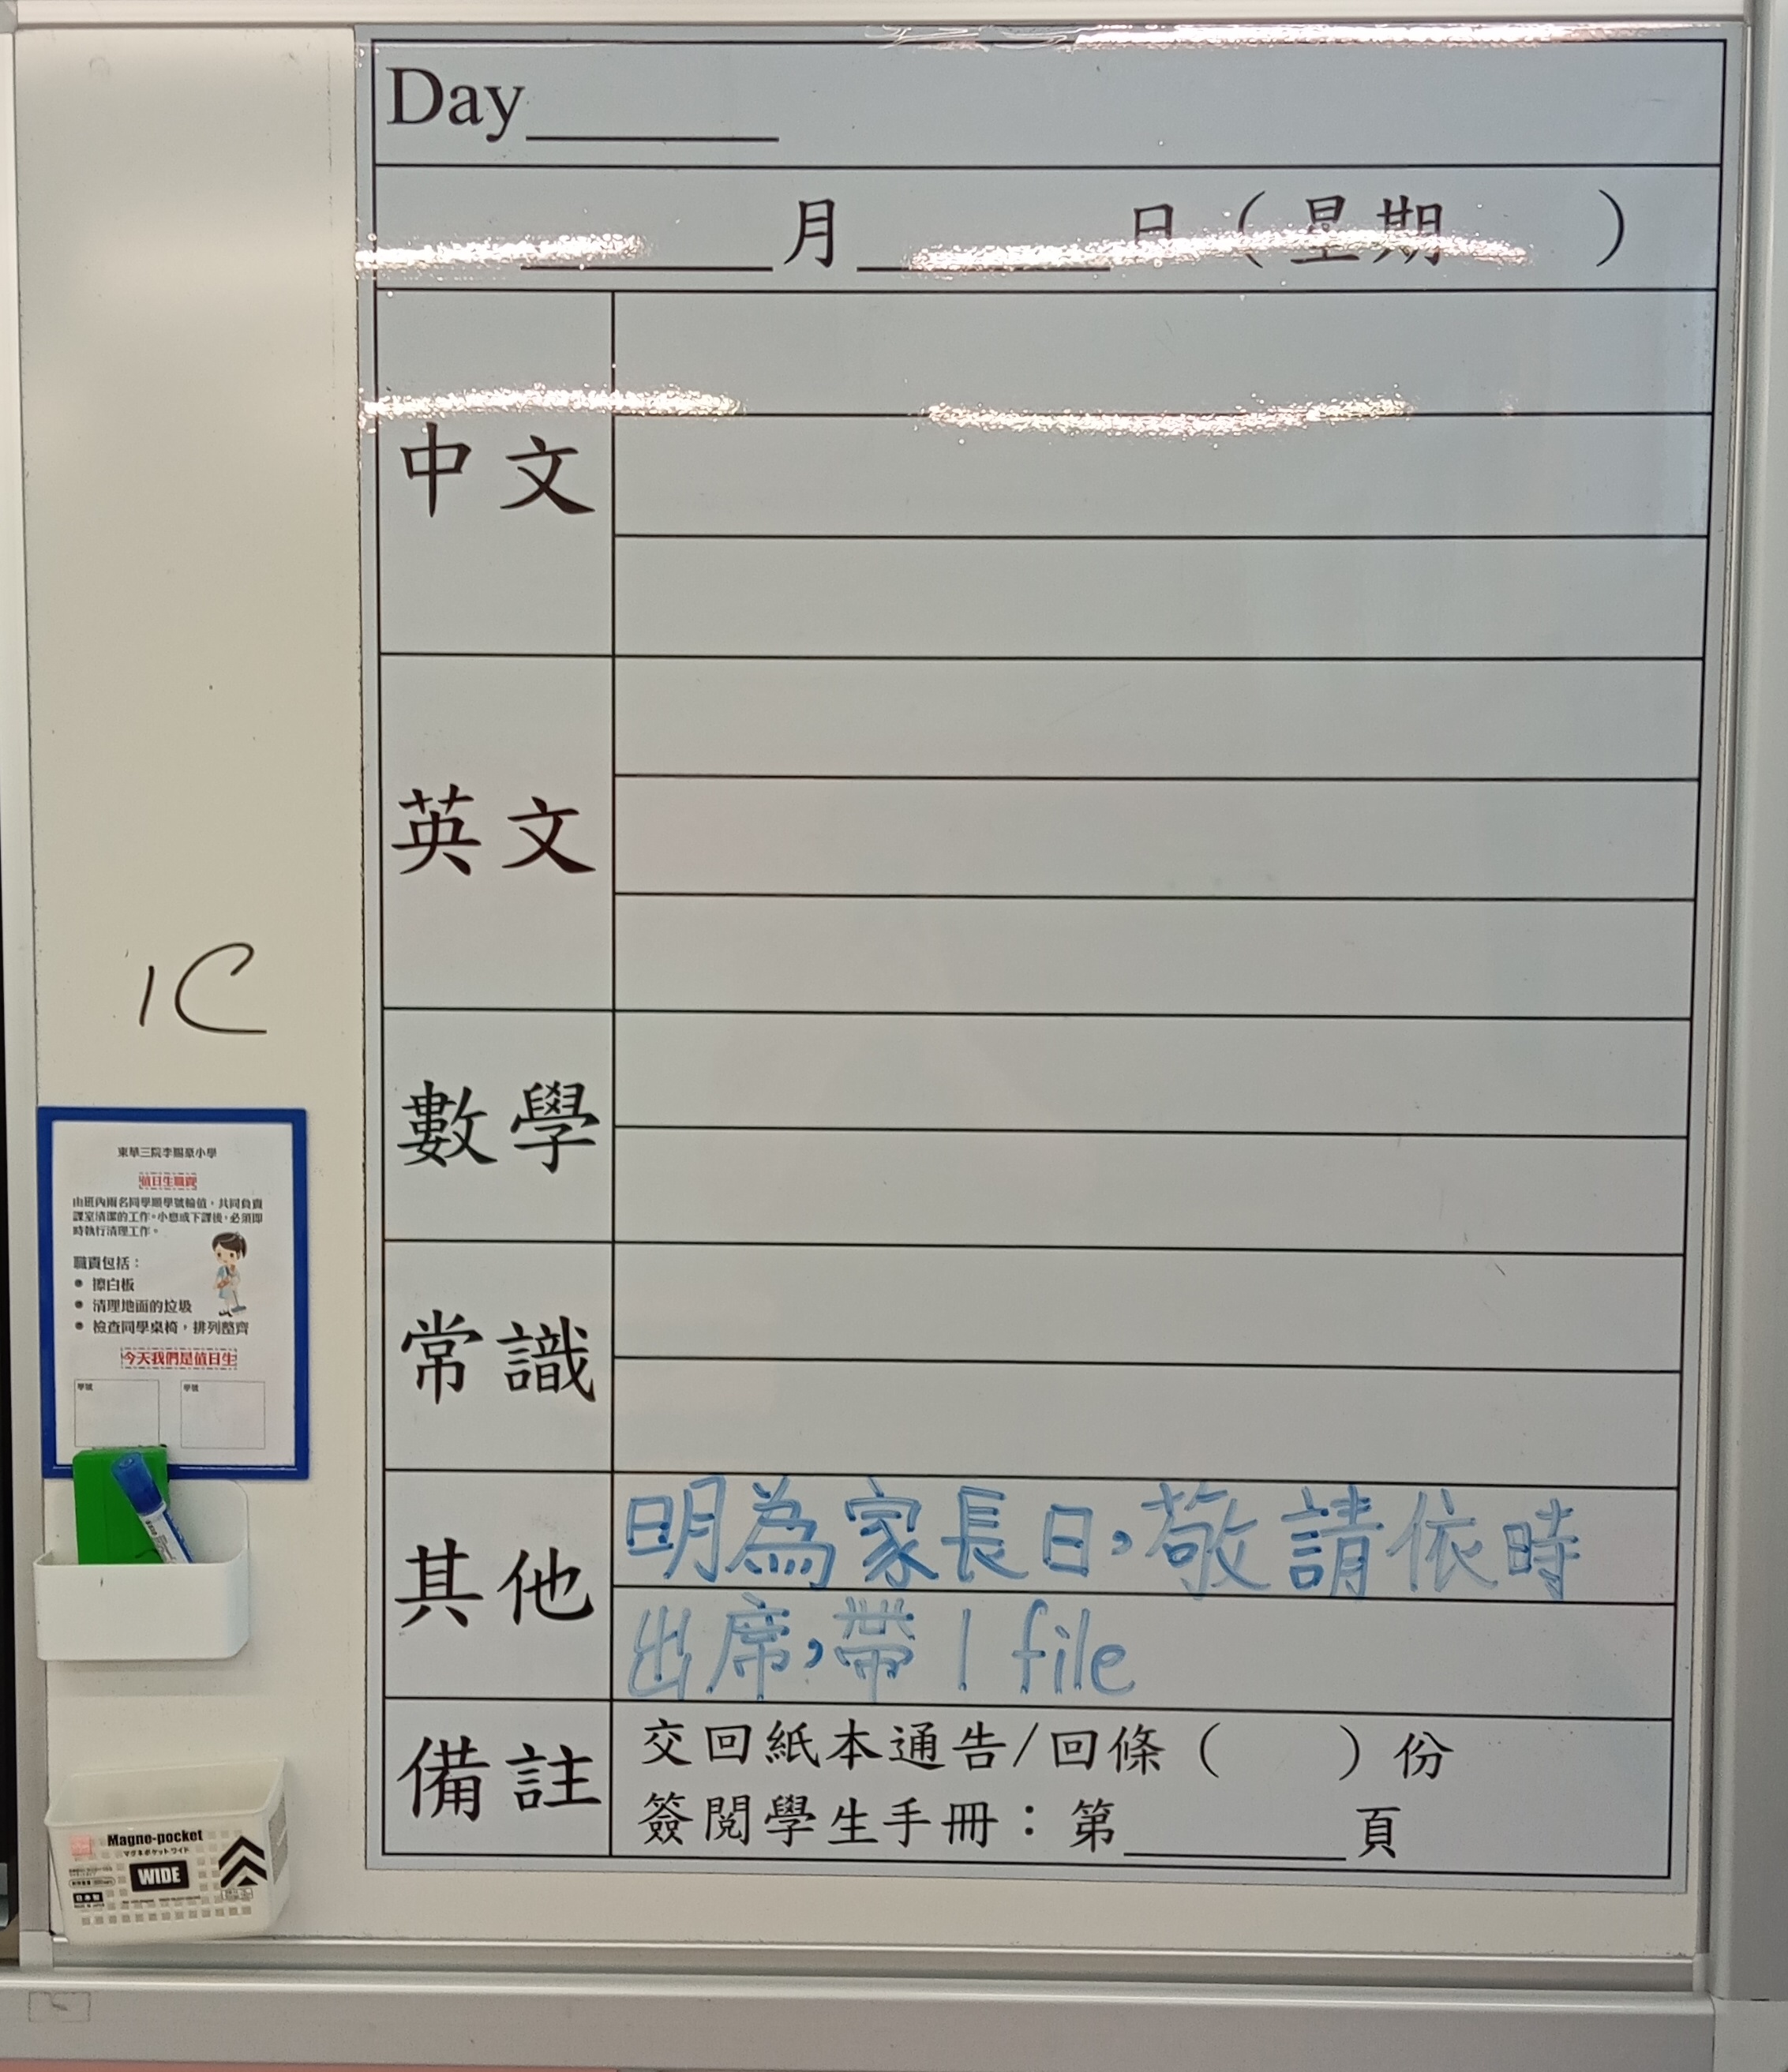 Day______
______月______日（星期　　）
中文
英文
數學
常識
其他
明為家長日，敬請依時
出席，帶 1 file
備註
交回紙本通告/回條（　　）份
簽閱學生手冊：第______頁
1C
東華三院李賜豪小學
值日生職責
由班內兩名同學順學號輪值，共同負責
課室清潔的工作。小息或下課後，必須即
時執行清理工作。
職責包括：
• 擦白板
• 清理地面的垃圾
• 檢查同學桌椅，排列整齊
今天我們是值日生
學號
學號
Magne-pocket
マグネポケット ワイド
WIDE
日本製
MADE IN JAPAN